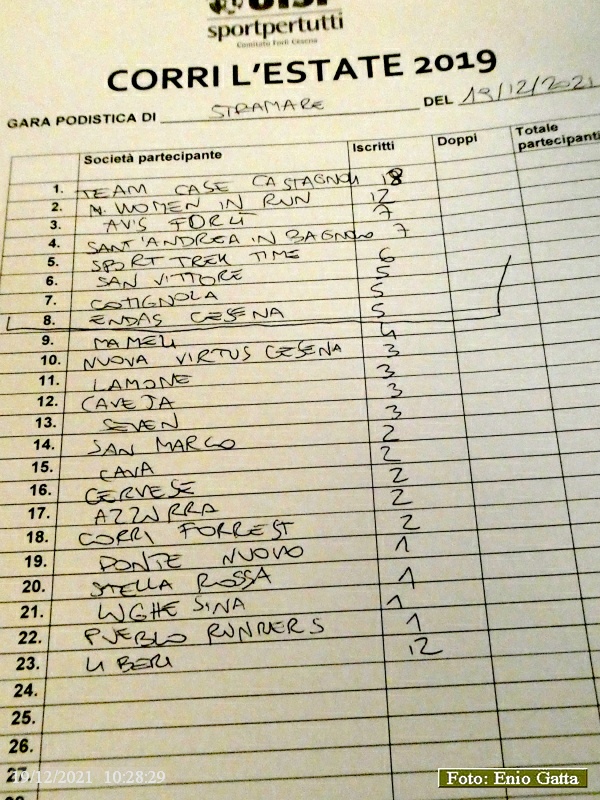 UISP
sportpertutti
Comitato Forlì Cesena
CORRI L'ESTATE 2019
GARA PODISTICA DI STRAMARE DEL 19/12/2021
Società partecipante Iscritti Doppi Totale partecipanti
1. TEAM CASE CASTAGNOLI 18
2. N. WOMEN IN RUN 12
3. AVIS FORLÌ 7
4. SANT'ANDREA IN BAGNOLO 7
5. SPORT TREK TIME 6
6. SAN VITTORE 5
7. COTIGNOLA 5
8. ENDAS CESENA 5
9. MAMELI 4
10. NUOVA VIRTUS CESENA 3
11. LAMONE 3
12. CAVEJA 3
13. SEVEN 3
14. SAN MARCO 2
15. CAVA 2
16. CERVESE 2
17. AZZURRA 2
18. CORRI FORREST 2
19. PONTE NUOVO 1
20. STELLA ROSSA 1
21. LUGHESINA 1
22. PUEBLO RUNNERS 1
23. LIBERI 12
24.
25.
26.
27.
28.
19/12/2021 10:28:29
Foto: Enio Gatta